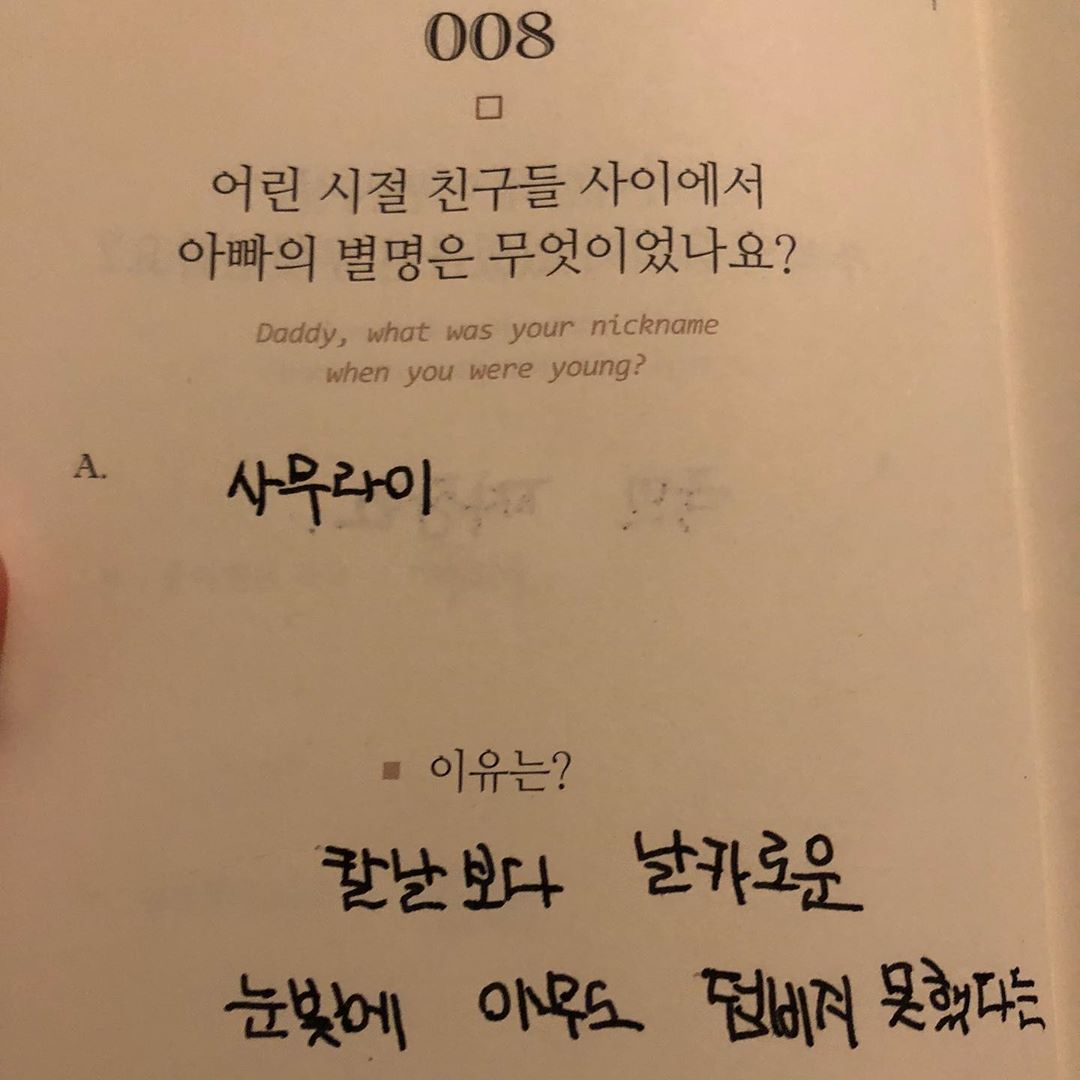 008
어린 시절 친구들 사이에서
아빠의 별명은 무엇이었나요?
Daddy, what was your nickname
when you were young?
A. 사무라이
이유는?
칼날보다 날카로운
눈빛에 아무도 덤비지 못했다는